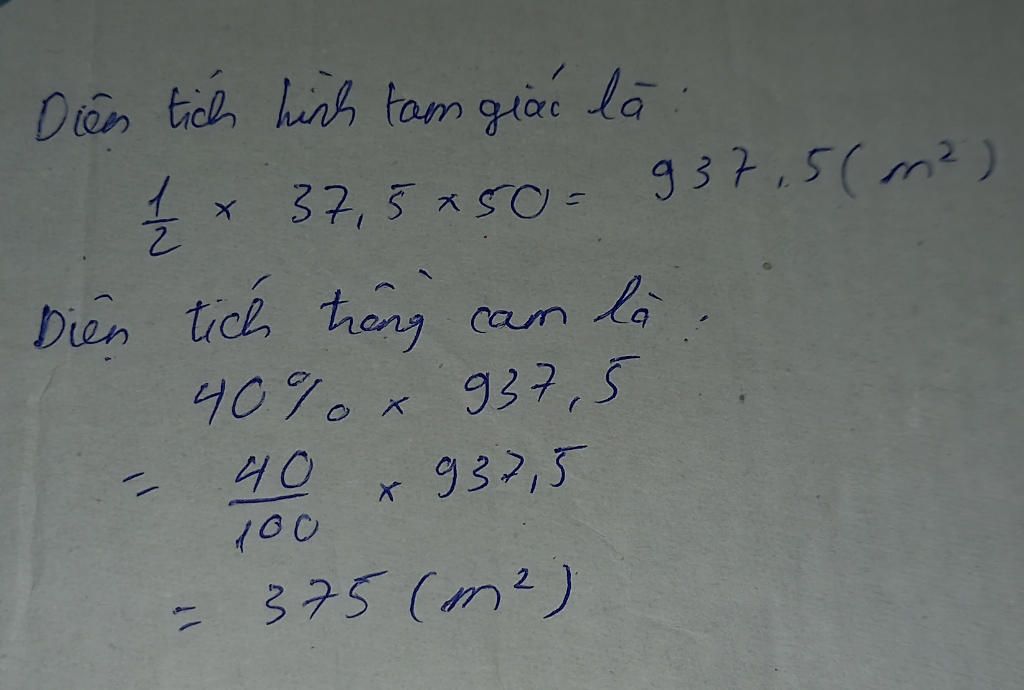 Diện tích hình tam giác là:
1/2 × 37,5 × 50 = 937,5 (m²)
Diện tích trồng cam là:
40% × 937,5
= 40/100 × 937,5
= 375 (m²)